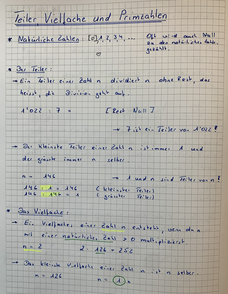 Teiler, Vielfache und Primzahlen
* Natürliche Zahlen: [0],1,2,3,4,... Oft wird auch Null
zu den natürlichen Zahlen
gezählt.
* Der Teiler:
→ Ein Teiler einer Zahl n dividiert n ohne Rest, das
heisst, die Division geht auf.
1'022 : 7 = [Rest Null]
→ 7 ist ein Teiler von 1'022!
→ Der kleinste Teiler einer Zahl n ist immer 1 und
der grösste immer n selber.
n = 146 → 1 und n sind Teiler von n!
146 : 1 = 146 (kleinster Teiler)
146 : 146 = 1 (grösster Teiler)
* Das Vielfache:
→ Ein Vielfaches einer Zahl n entsteht, wenn man
mit einer natürlichen Zahl > 0 multipliziert.
n = 2 2 · 126 = 252
→ Das kleinste Vielfache einer Zahl n ist n selber.
n = 126 n · 1 =